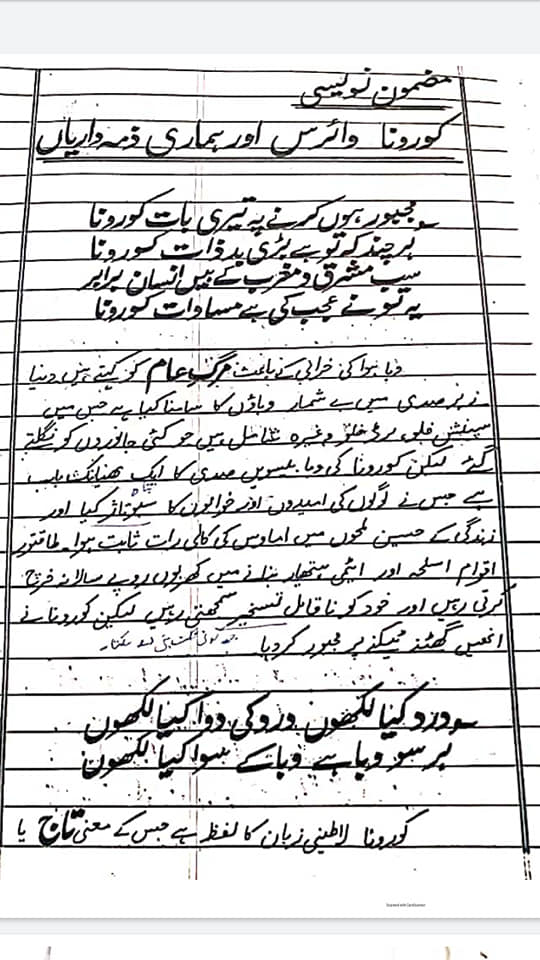 مضمون نویسی
کورونا وائرس اور ہماری ذمہ داریاں
مجبور ہوں کرنے پہ تیری بات کورونا
ہر چند کہ تو ہے بڑی بد ذات کورونا
سب مشرق و مغرب کے ہیں انسان برابر
یہ تو نے عجب کی ہے مساوات کورونا
وبا ہوا کی خرابی کے باعث مرگِ عام کو کہتے ہیں دنیا
نے ہر صدی میں بے شمار وباؤں کا سامنا کیا ہے جس میں
سپنش فلو، برڈ فلو وغیرہ شامل ہیں جو کئی جانوروں کو نگلتے
گئے لیکن کورونا کی وبا بیسویں صدی کا ایک بھیانک باب
ہے جس نے لوگوں کی امیدوں اور خوابوں کا کیا اور
زندگی کے حسین لمحوں میں اماوس کی کالی رات ثابت ہوا۔ طاقتور
اقوام اسلحہ اور ایٹمی ہتھیار بنانے میں کھربوں روپے سالانہ خرچ
کرتی رہیں اور خود کو ناقابل تسخیر سمجھتی رہیں لیکن کورونا نے
انھیں گھٹنے ٹیکنے پر مجبور کر دیا
درد کیا لکھوں درد کی دوا کیا لکھوں
ہر سو وبا ہے وبا کے سوا کیا لکھوں
کورونا لاطینی زبان کا لفظ ہے جس کے معنی تاج یا
Scanned with CamScanner